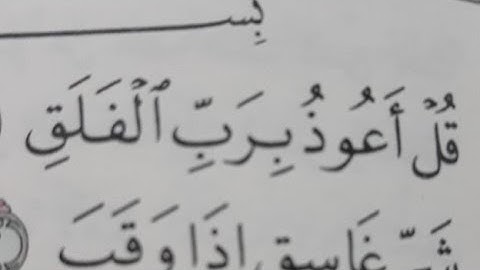 بِســـ
قُلْ أَعُوذُ بِرَبِّ ٱلْفَلَقِ
شَرِّ غَاسِقٍ إِذَا وَقَبَ